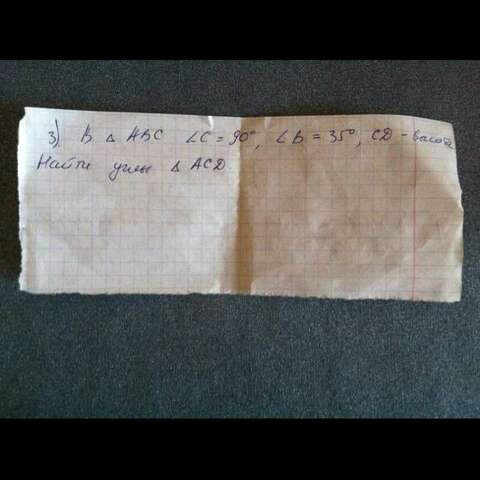 3) В △ ABC ∠C = 90°, ∠B = 35°, CD - высота
Найти углы △ ACD.